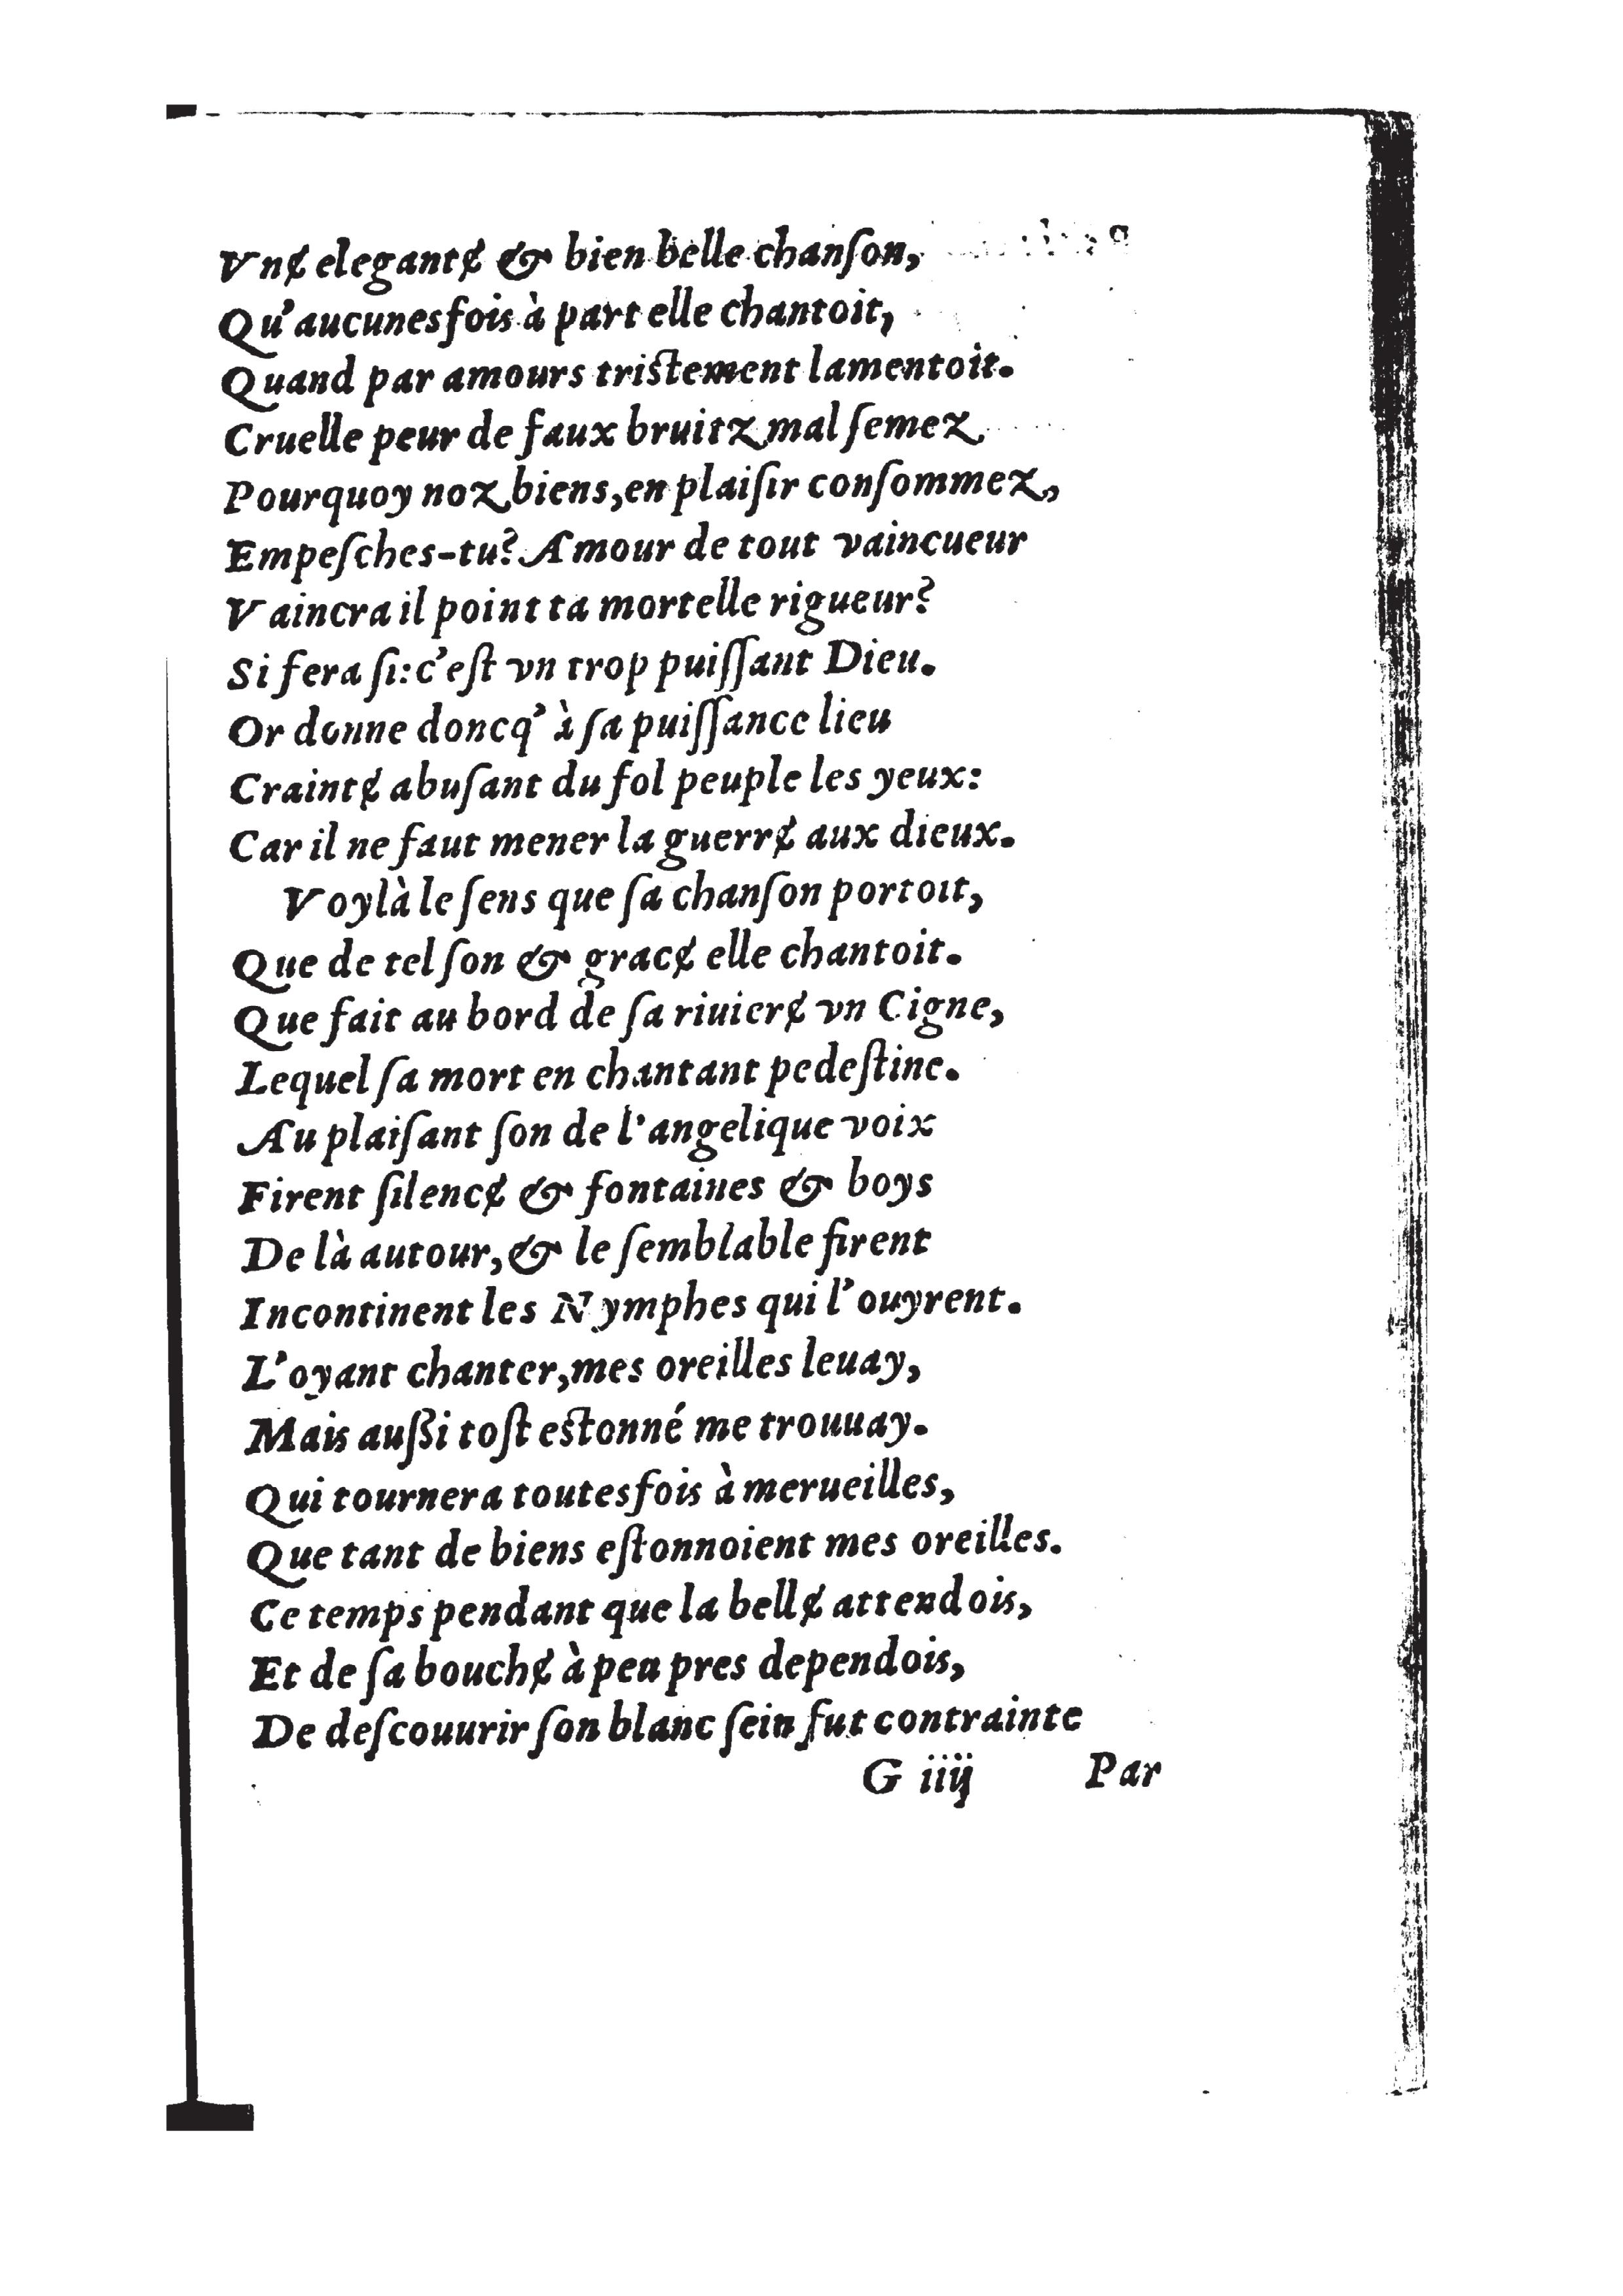 Vnɇ elegantɇ & bien belle chanſon,
Qu'aucunesfois à part elle chantoit,
Quand par amours triſtement lamentoit.
Cruelle peur de faux bruitz mal ſemez
Pourquoy noz biens, en plaiſir conſommez,
Empeſches-tu? Amour de tout vaincueur
Vaincra il point ta mortelle rigueur?
Si fera ſi: c'eſt vn trop puiſſant Dieu.
Or donne doncq' à ſa puiſſance lieu
Craintɇ abuſant du fol peuple les yeux:
Car il ne faut mener la guerrɇ aux dieux.
Voylà le ſens que ſa chanſon portoit,
Que de tel ſon & gracɇ elle chantoit.
Que fait au bord de ſa riuierɇ vn Cigne,
Lequel ſa mort en chantant pedeſtine.
Au plaiſant ſon de l'angelique voix
Firent ſilencɇ & fontaines & boys
De là autour, & le ſemblable firent
Incontinent les Nymphes qui l'ouyrent.
L'oyant chanter, mes oreilles leuay,
Mais außi toſt eſtonné me trouuay.
Qui tournera toutesfois à merueilles,
Que tant de biens eſtonnoient mes oreilles.
Ce temps pendant que la bellɇ attendois,
Et de ſa bouchɇ à peu pres dependois,
De deſcouurir ſon blanc ſein fut contrainte
G iiij Par